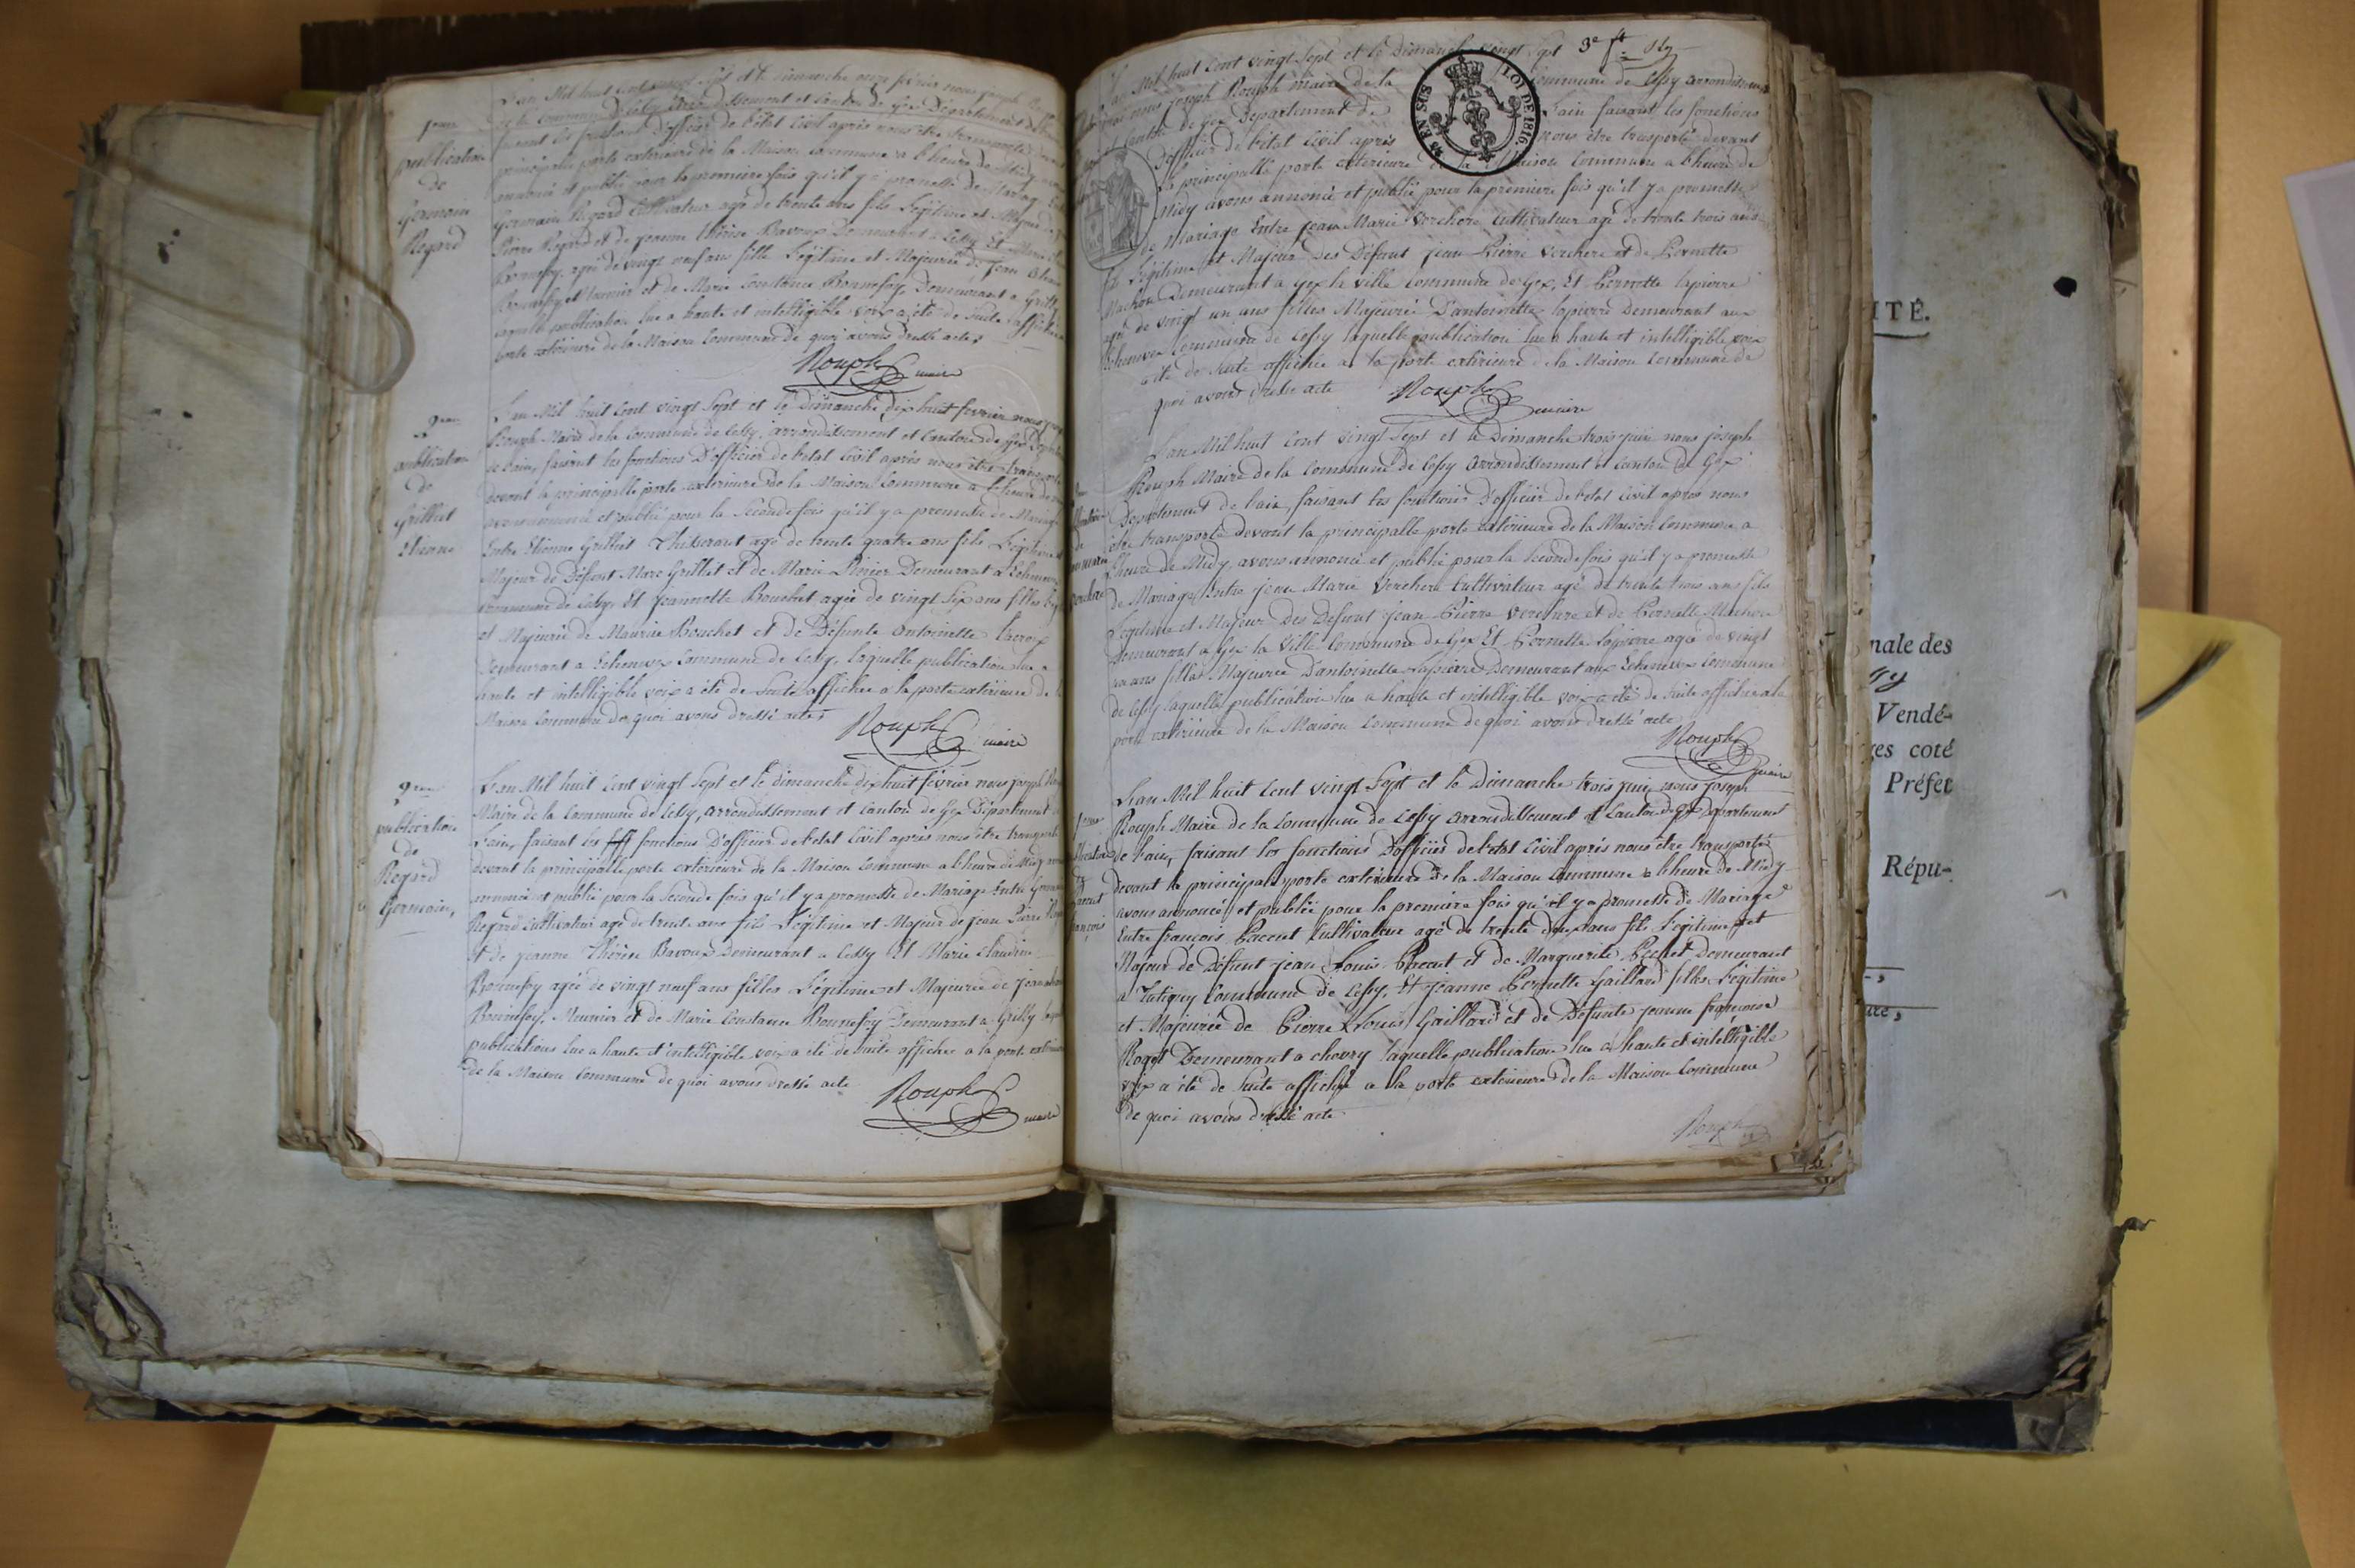 L'an Mil huit cent vingt Sept et le dimanche onze février nous joseph
de la commune de Cessy arrondissement et Canton de Gex Département de l'ain
faisant les fonctions D'officier de l'état Civil après nous être transporté devant
principale porte extérieure de la Maison commune a l'heure de Midy avons
annoncé et publié pour la première fois qu'il y a promesse de Mariage Entre
Germain Regard Cultivateur agé de trente ans fils Légitime et Majeur de
Pierre Regard et de jeanne thérèse Bavoux Demeurant a Cessy Et Marie
Bonnefoy agée de vingt neuf ans fille Légitime et Majeurée de Jean
Bonnefoy Meunier et de Marie Constance Bonnefoy Demeurant a Grilly
laquelle publication lue a haute et intelligible voix a été de suite affichée
porte extérieure de la Maison Commune de quoi avons dressé acte
Rouph maire
1ere
publication
de
Germain
Regard
L'an Mil huit Cent vingt Sept et le Dimanche dix huit fevrier nous
Rouph Maire de la Commune de Cessy, arrondissement et Canton de Gex
de l'ain, faisant les fonctions D'officier de l'état Civil après nous être transporté
devant la principalle porte exterieure de la Maison Commune a l'heure de
avons annoncé et publié pour la Seconde fois qu'il y a promesse de Mariage
Entre Etienne Grilliet Thisserant agé de trente quatre ans fils Légitime
Majeur de Défunt Marc Grilliet et de Marie Demeurant a Echenevex
Commune de Cessy, Et Jeannette Bouchet agée de vingt Six ans filles
et Majeurée de Maurice Bouchet et de Défunte antoinette
Demeurant a Echenevex Commune de Cessy, laquelle publication lue a
haute et intelligible voix a été de Suite affichée a la porte extérieure de
Maison Commune de quoi avons dressé acte
Rouph maire
2eme
publication
de
Grilliet
Etienne
L'an Mil huit Cent vingt Sept et le dimanche dix huit février nous joseph
Maire de la Commune de Cessy, arrondissement et Canton de Gex Département
L'ain, faisant les fonctions D'officier de l'état Civil après nous être transporté
devant la principalle porte extérieure de la Maison Commune a l'heure de Midy
annoncé et publié pour la Seconde fois qu'il y a promesse de Mariage Entre Germain
Regard Cultivateur agé de trente ans fils Légitime et Majeur de jean Pierre
Et de jeanne Thérèse Bavoux Demeurant a Cessy Et Marie Claudine
Bonnefoy agée de vingt neuf ans filles Légitime et Majeurée de jean
Bonnefoy, Meunier et de Marie Constance Bonnefoy Demeurant a Grilly
publications lue a haute et intelligible voix a été de suite affichee a la porte extérieure
de la Maison Commune de quoi avons dressé acte
Rouph maire
2eme
publication
de
Regard
Germain,
3e ft
L'an Mil huit Cent vingt Sept et le dimanche vingt Sept
nous joseph Rouph Maire de la Commune de Cessy arrondissement
Canton de Gex Département de l'ain faisant les fonctions
D'officier de l'état Civil après nous être trasporté devant
la principalle porte extérieure de la Maison Commune a l'heure de
Midy avons annoncé et publié pour la premiere fois qu'il y a promesse
de Mariage Entre jean Marie Verchere Cultivateur agé de trente trois ans
fils Légitime et Majeur Des Défunt jean Pierre Verchere et de Pernette
Machon Demeurant a Gex la ville Commune de Gex, Et Pernette lapierre
agée de vingt un ans filles Majeurée D'antoinette lapierre Demeurant aux
Echenevex Commune de Cessy laquelle publication lue a haute et intelligible voix
a été de Suite affichée a la porte extérieure de la Maison Commune de
quoi avons dressé acte
Rouph maire
5e EN SUS
LOI DE 1816.
L'an Mil huit Cent vingt Sept et le Dimanche trois juin nous joseph
Rouph Maire de la Commune de Cessy arrondissement et Canton de Gex
Département de l'ain, faisant les fonctions D'officier de l'état Civil après nous
être transporté devant la principalle porte extérieure de la Maison Commune a
l'heure de Midy, avons annoncé et publié pour la seconde fois qu'il y a promesse
de Mariage Entre jean Marie Verchere Cultivateur agé de trente trois ans fils
Legitime et Majeur Des Defunt jean Pierre Verchere et de Pernette Machon
Demeurant a Gex la Ville Commune de Gex Et Pernette lapierre agée de vingt
un ans filles Majeurée D'antoinette lapierre Demeurant aux Echenevex Commune
de Cessy laquelle publication lue a haute et intelligible voix a été de suite affichée a la
porte extérieure de la Maison Commune de quoi avons dressé acte
Rouph maire
L'an Mil huit Cent vingt Sept et le Dimanche trois juin nous joseph
Rouph Maire de la Commune de Cessy arrondissement et Canton de Gex Département
de l'ain, faisant les fonctions D'officier de l'état Civil après nous être transporté
devant la principale porte extérieure de la Maison Commune a l'heure de Midy
avons annoncé et publiée pour la premiere fois qu'il y a promesse de Mariage
Entre françois Pacent Cultivateur agé de trente deux ans fils Légitime et
Majeur de Défunt jean Louis Pacent et de Marguerite Pechet Demeurant
a Tutigny Commune de Cessy, Et jeanne Pernette Gaillard filles Légitime
et Majeurée de Pierre Louis Gaillard et de Défunte jeanne françoise
Roget Demeurant a chevry laquelle publication lue a haute et intelligible
voix a été de Suite affichée a la porte extérieure de la Maison Commune
de quoi avons dressé acte
Rouph
ITÉ.
nale des
Vendé-
ges coté
Préfet
Répu-